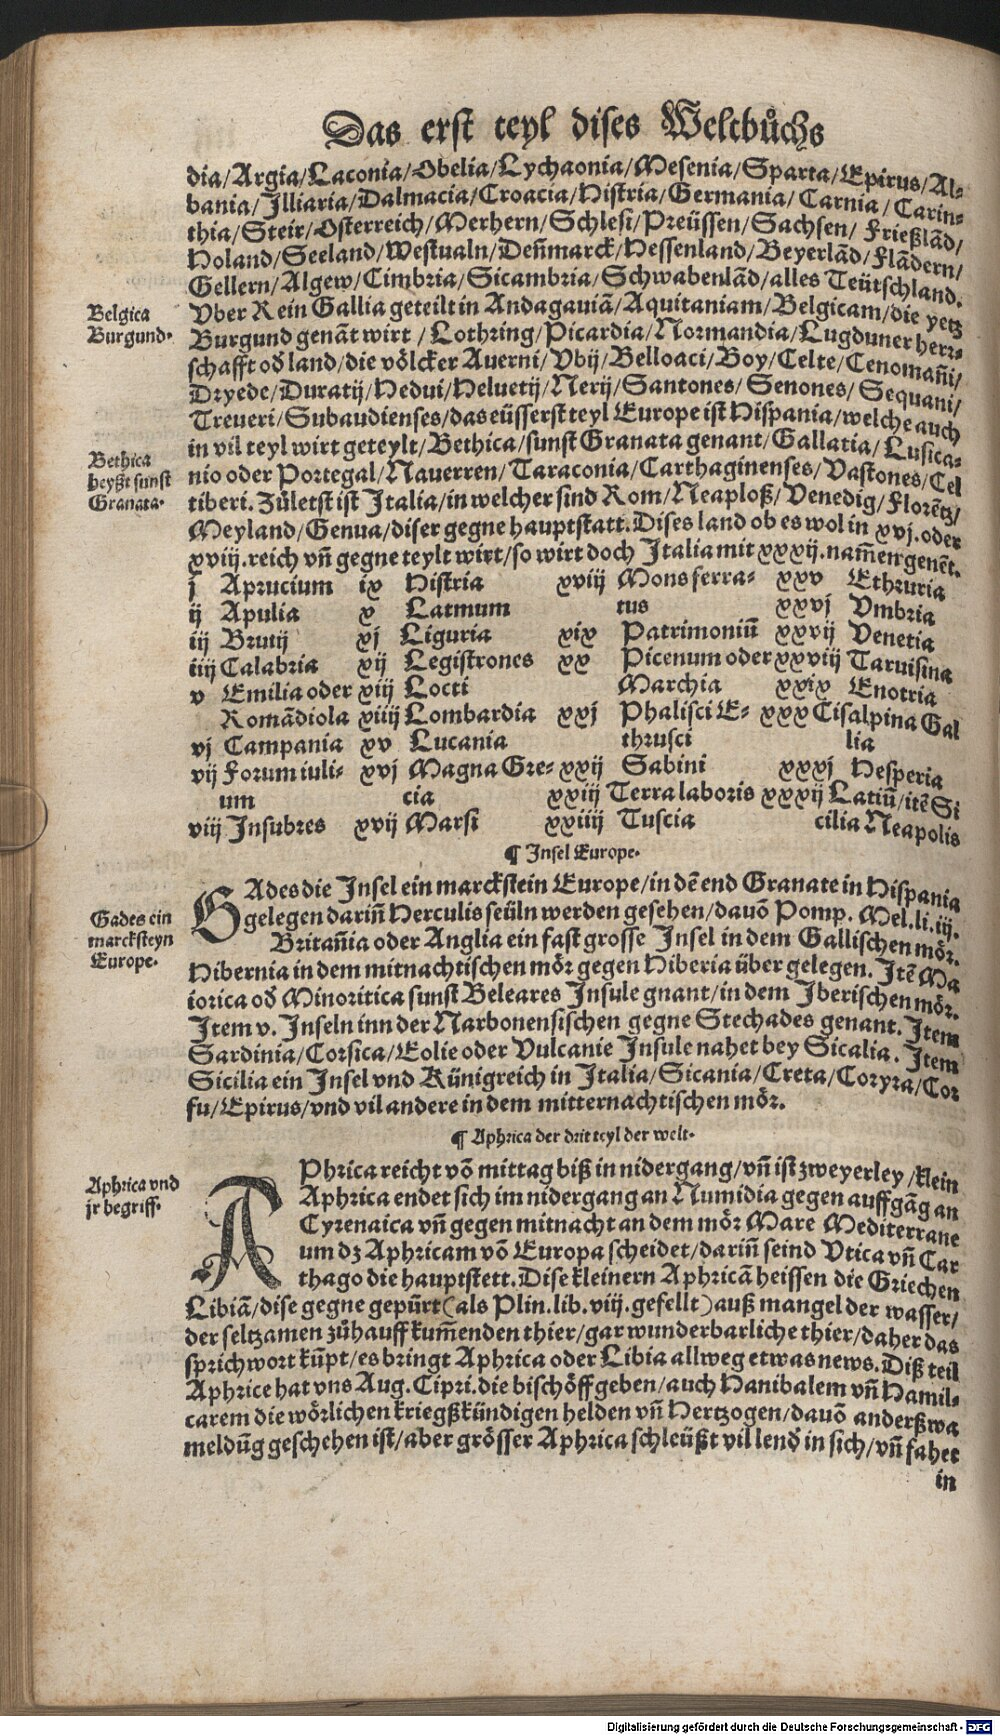 Das erst teyl dises Weltbůchs
dia/Argia/Laconia/Obelia/Lychaonia/Mesenia/Sparta/Epirus/Al-
bania/Illiaria/Dalmacia/Croacia/Histria/Germania/Carnia/Carin-
thia/Steir/Osterreich/Merhern/Schlesi/Preüssen/Sachsen/Frießlãd/
Holand/Seeland/Westualn/Deñmarck/Hessenland/Beyerlãd/Flãdern/
Gellern/Algew/Cimbria/Sicambria/Schwabenlãd/alles Teütschland.
Vber Rein Gallia geteilt in Andagauiã/Aquitaniam/Belgicam/die yetz
Belgica
Burgund.
Burgund genãt wirt/Lothring/Picardia/Normandia/Lugduner herr-
schafft oď land/die völcker Auerni/Vbij/Belloaci/Boy/Celte/Cenomañi/
Dryede/Duratij/Hedui/Heluetij/Nerij/Santones/Senones/Sequani/
Treueri/Subaudienses/das eüsserst teyl Europe ist Hispania/welche auch
in vil teyl wirt geteylt/Bethica/sunst Granata genant/Gallatia/Lusica-
Bethica
heyßt sunst
Granata.
nio oder Portegal/Nauerren/Taraconia/Carthaginenses/Vastones/Cel
tiberi. Zůletst ist Italia/in welcher sind Rom/Neaploß/Venedig/Florẽtz/
Meyland/Genua/diser gegne hauptstatt. Dises land ob es wol in xvj. oder
xviij. reich vñ gegne teylt wirt/so wirt doch Italia mit xxxij. nam̃en genẽt.
j Aprucium ix Histria xviij Mons ferra- xxv Ethruria
ij Apulia x Latmum tus xxvj Vmbria
iij Brutij xj Liguria xix Patrimoniũ xxvij Venetia
iiij Calabria xij Legistrones xx Picenum oder xxviij Taruisina
v Emilia oder xiij Locti Marchia xxix Enotria
Romãdiola xiiij Lombardia xxj Phalisci E- xxx Cisalpina Gal
vj Campania xv Lucania thrusci lia
vij Forum iuli- xvj Magna Gre- xxij Sabini xxxj Hesperia
um cia xxiij Terra laboris xxxij Latiũ/itẽ Si
viij Insubres xvij Marsi xxiiij Tuscia cilia Neapolis
¶ Insel Europe.
GAdes die Insel ein marckstein Europe/in dẽ end Granate in Hispania
Gades ein
marcksteyn
Europe.
gelegen dariñ Herculis seüln werden gesehen/dauõ Pomp. Mel. li. iij.
Britañia oder Anglia ein fast grosse Insel in dem Gallischen mör.
Hibernia in dem mitnachtischen mör gegen Hiberia über gelegen. Itẽ Ma
iorica oď Minoritica sunst Beleares Insule gnant/in dem Iberischen mör.
Item v. Inseln inn der Narbonensischen gegne Stechades genant. Item
Sardinia/Corsica/Eolie oder Vulcanie Insule nahet bey Sicalia. Item
Sicilia ein Insel vnd Künigreich in Italia/Sicania/Creta/Coryra/Cor
fu/Epirus/vnd vil andere in dem mitternachtischen mör.
¶ Aphrica der drit teyl der welt.
Aphrica vnd
jr begriff.
APhrica reicht võ mittag biß in nidergang/vñ ist zweyerley/klein
Aphrica endet sich im nidergang an Numidia gegen auffgãg an
Cyrenaica vñ gegen mitnacht an dem mör Mare Mediterrane
um dz Aphricam võ Europa scheidet/dariñ seind Vtica vñ Car
thago die hauptstett. Dise kleinern Aphricã heissen die Griechen
Libiã/dise gegne gepürt (als Plin. lib. viij. gefellt) auß mangel der wasser/
der seltzamen zůhauff kum̃enden thier/gar wunderbarliche thier/daher das
sprichwort kũpt/es bringt Aphrica oder Libia allweg etwas news. Diß teil
Aphrice hat vns Aug. Cipri. die bischöff geben/auch Hanibalem vñ Hamil-
carem die wörlichen kriegßkündigen helden vñ Hertzogen/dauõ anderßwa
meldũg geschehen ist/aber grösser Aphrica schleüßt vil lenď in sich/vñ fahet
in
Digitalisierung gefördert durch die Deutsche Forschungsgemeinschaft - DFG